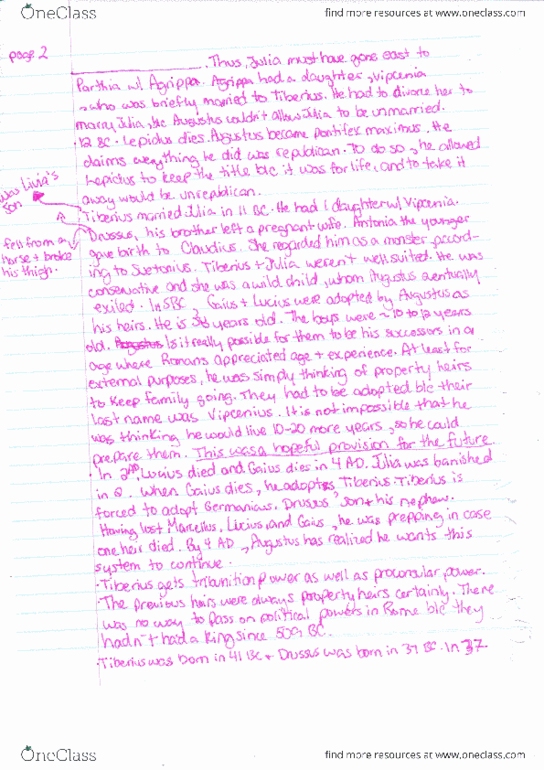 OneClass
find more resources at www.oneclass.com
page 2
Thus, Julia must have gone east to
Parthia w/ Agrippa. Agrippa had a daughter, Vipcenia
, who was briefly married to Tiberius. He had to divorce her to
marry Julia, b/c Augustus couldn't allow Julia to be unmarried.
· 12 BC · Lepidus dies. Augustus became pontifex maximus. He
claims everything he did was republican. To do so, he allowed
Lepidus to keep the title b/c it was for life, and to take it
away would be unrepublican.
was Livia's
son
Tiberius married Julia in 11 BC. He had 1 daughter w/ Vipcenia.
Drusus, his brother left a pregnant wife. Antonia the younger
fell from a
horse + broke
his thigh.
gave birth to Claudius. She regarded him as a monster, accord-
ing to Suetonius. Tiberius + Julia weren't well suited. He was
conservative and she was a wild child, whom Augustus eventually
exiled. In 5BC, Gaius + Lucius were adopted by Augustus as
his heirs. He is years old. The boys were ~ 10 to 12 years
old. Is it really possible for them to be his successors in a
age where Romans appreciated age + experience. At least for
external purposes, he was simply thinking of property heirs
to keep family going. They had to be adopted b/c their
last name was Vipcenius. It is not impossible that he
was thinking he would live 10-20 more years, so he could
prepare them. This was a hopeful provision for the future.
· In 2AD, Lucius died and Gaius dies in 4 AD. Julia was banished
in 2. When Gaius dies, he adopts Tiberius. Tiberius is
forced to adopt Germanicus, Drusus' son + his nephew.
Having lost Marcellus, Lucius, and Gaius, he was prepping in case
one heir died. By 4 AD, Augustus has realized he wants this
system to continue.
· Tiberius gets tribunition power as well as proconsular power.
· The previous heirs were always property heirs certainly. There
was no way to pass on political powers in Rome b/c they
hadn't had a king since 509 BC.
· Tiberius was born in 41 BC + Drusus was born in 37 BC. In 37,
OneClass
find more resources at www.oneclass.com